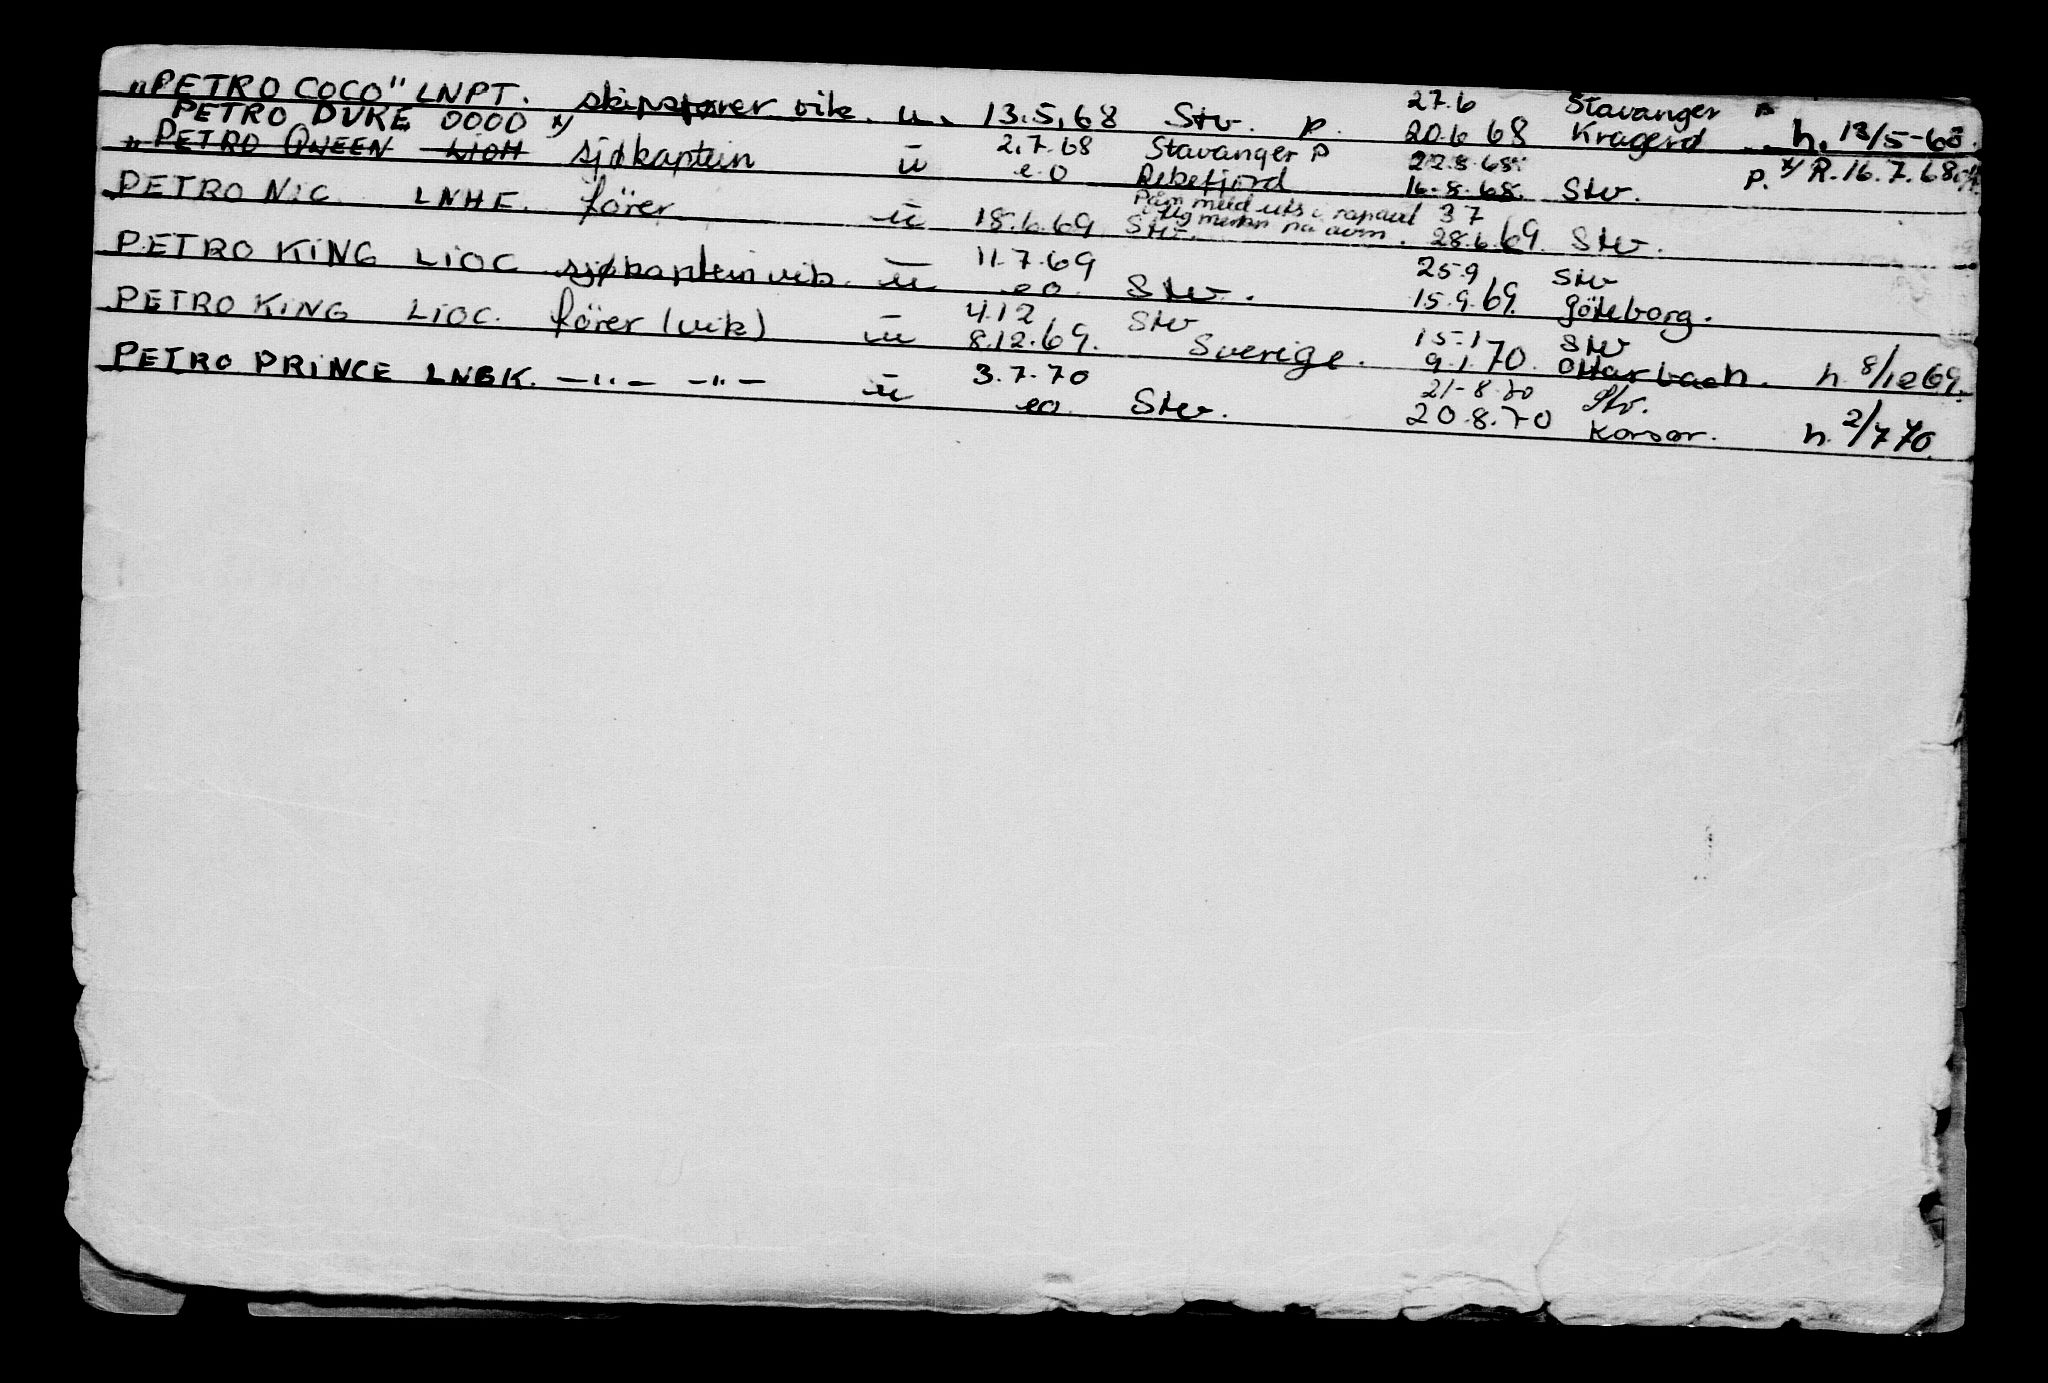 „PETRO COCO" LNPT. skipsfører vik. u. 13.5.68 Stv. p. 27.6 Stavanger p
20.6 68 Kragerø h. 13/5-68.
PETRO DUKE OOOO x/
„PETRO QUEEN LIOH sjøkaptein u 2.7.68 Stavanger p 22.8.68. p. x/ R.16.7.68
e.o Rekefjord 16.8.68. Stv.
PETRO NIC. LNHE. fører u 18.6.69 Stv. 37
28.6.69. Stv.
PETRO KING LIOC sjøkaptein vik. u 11.7.69 25.9 Stv
eo. Stv. 15.9.69. Göteborg.
PETRO KING LIOC. fører (vik) u 4.12 Stv 15.1 Stv
8.12.69. Sverige. 9.1.70. h. 8/12 69.
PETRO PRINCE LNBK. —"— —"— u 3.7.70 21-8.70 Stv.
eo. Stv. 20.8.70 Korsør. h. 2/7 70.